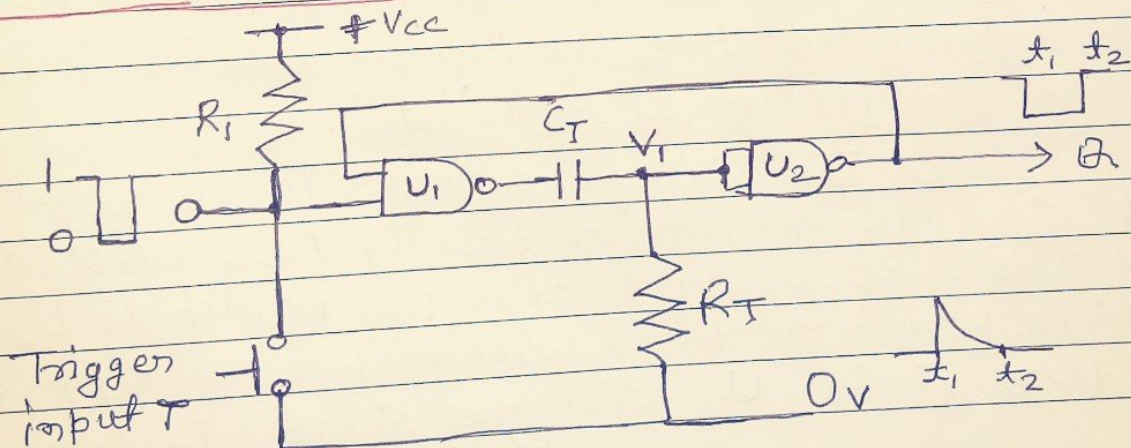 +Vcc
t1 t2
R1
CT
V1
U1
U2
Q
1
0
RT
Trigger
input T
0v
t1 t2